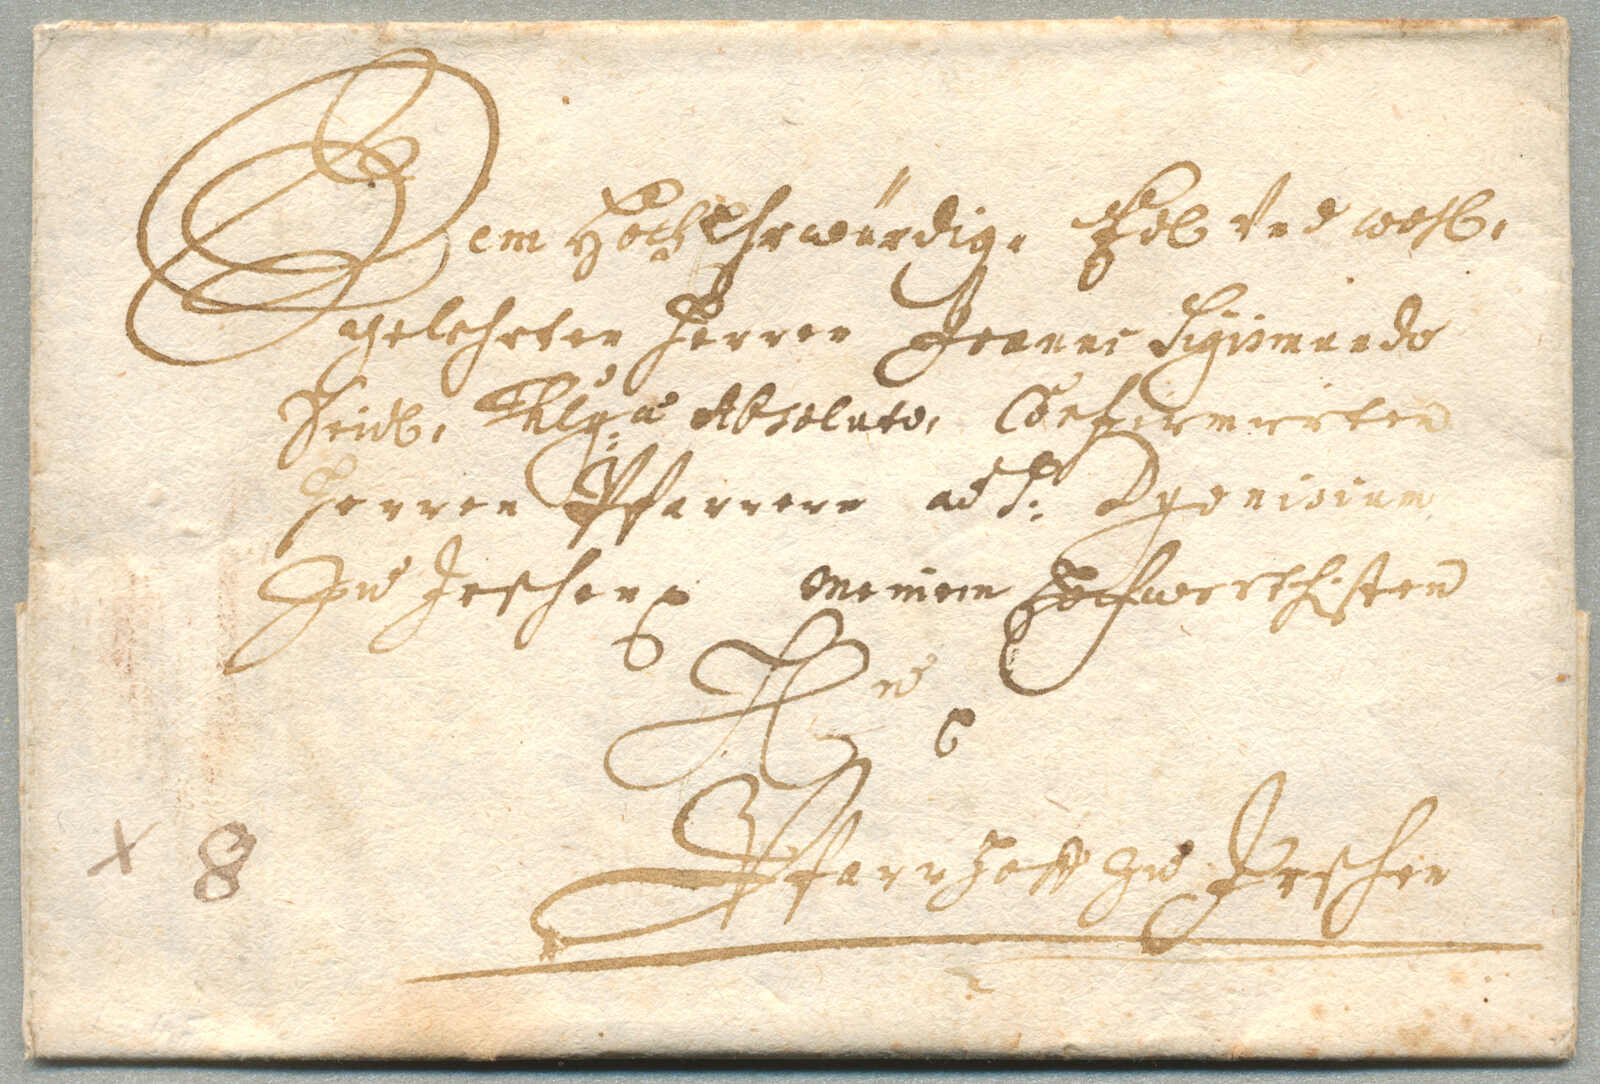 Dem HochEhrwürdig: Edl Vnd wohl:
gelehrten Herren Joanni Sigismundo
Seidl, Absoluto, Confirmierten
Herren Pfarrern ad S: Dyonisium
Zu Irschen Meinem Hochwerthisten
Pfarrhoff Zu Irschen
x 8